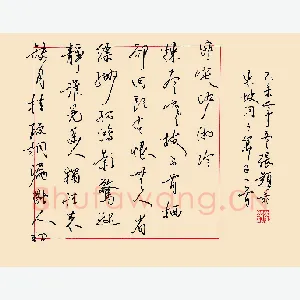 缺月挂疏桐漏断人初
静谁见幽人独往来
缥缈孤鸿影惊起
却回头有恨无人省
拣尽寒枝不肯栖
寂寞沙洲冷
东坡词卜算子一首
乙未
shufawang.cn